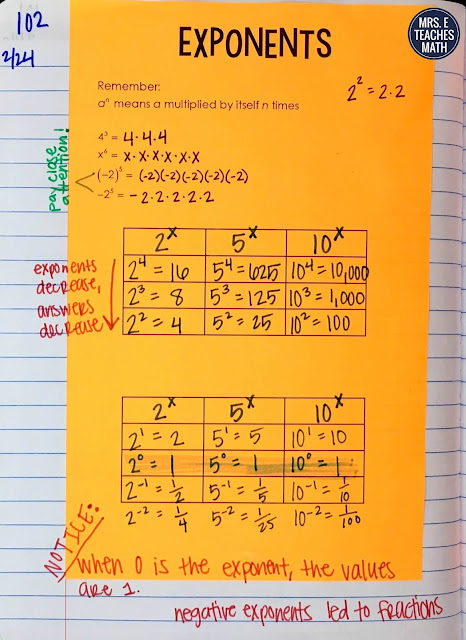 102
2/24
MRS. E
TEACHES
MATH
EXPONENTS
Remember:
aⁿ means a multiplied by itself n times
2² = 2·2
4³ = 4·4·4
x⁶ = x·x·x·x·x·x
pay close
attention!
(-2)⁵ = (-2)(-2)(-2)(-2)(-2)
-2⁵ = -2·2·2·2·2
2ˣ 5ˣ 10ˣ
2⁴ = 16 5⁴ = 625 10⁴ = 10,000
2³ = 8 5³ = 125 10³ = 1,000
2² = 4 5² = 25 10² = 100
exponents
decrease,
answers
decrease
2ˣ 5ˣ 10ˣ
2¹ = 2 5¹ = 5 10¹ = 10
2⁰ = 1 5⁰ = 1 10⁰ = 1
2⁻¹ = 1/2 5⁻¹ = 1/5 10⁻¹ = 1/10
2⁻² = 1/4 5⁻² = 1/25 10⁻² = 1/100
NOTICE:
when 0 is the exponent, the values
are 1.
negative exponents led to fractions